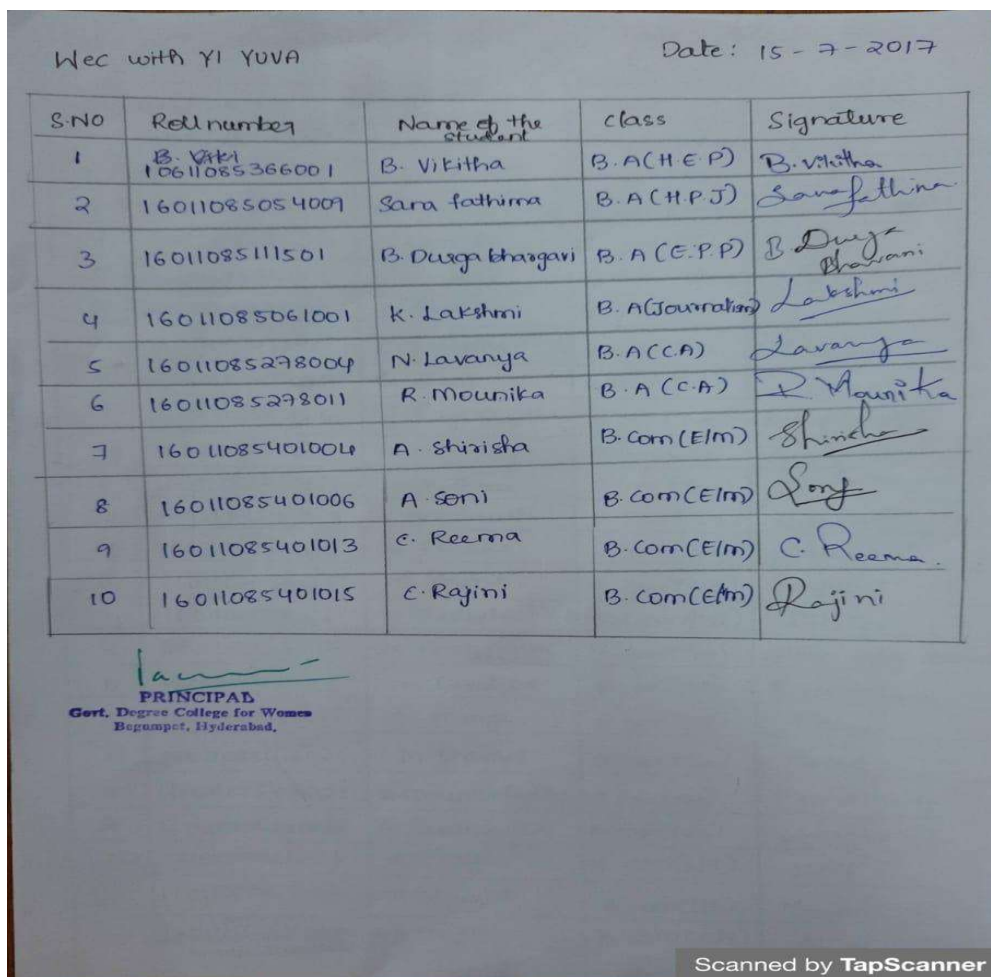 Wec with YI YUVA Date: 15-7-2017
S.NO Roll number Name of the student class Signature
1 B. Viki 10611085366001 B. Vikitha B.A(H.E.P) B. Vikitha
2 16011085054009 Sara fathima B.A(H.P.J) Sara fathima
3 16011085111501 B. Durga bhargavi B.A(E.P.P) B Durga Bhavani
4 16011085061001 K. Lakshmi B.A(Journalism) Lakshmi
5 16011085278004 N. Lavanya B.A(C.A) Lavanya
6 16011085278011 R. Mounika B.A(C.A) R Mounika
7 16011085401004 A. Shirisha B.com(E/m) Shirisha
8 16011085401006 A. Soni B.com(E/m) Sony
9 16011085401013 C. Reema B.com(E/m) C. Reema.
10 16011085401015 C. Rajini B.com(E/m) Rajini
PRINCIPAL
Govt. Degree College for Women
Begumpet, Hyderabad,
Scanned by TapScanner